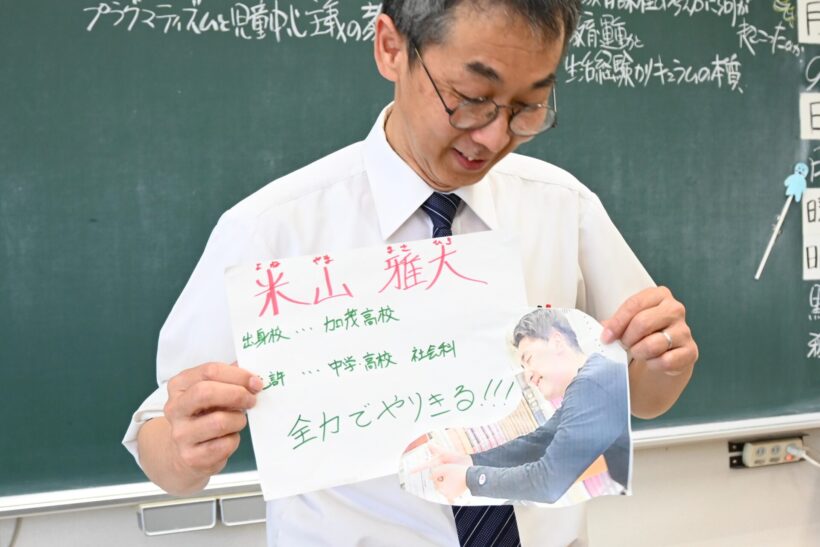 プラグマティズムと児童中心主義の
教育運動と
起こったのか
生活経験カリキュラムの本質
月
日
曜
日
よね やま まさ ひろ
米山 雅大
出身校 … 加茂高校
許 … 中学・高校 社会科
全力でやりきる!!!